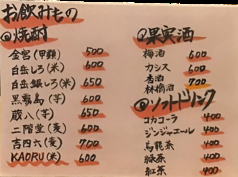 お飲みもの
@焼酎
金宮(甲類) 500
白岳しろ(米) 600
白岳銀しろ(米) 650
黒霧島(芋) 600
蔵八(芋) 650
二階堂(麦) 600
吉四六(麦) 700
KAORU(米) 600
@果実酒
梅酒 600
カシス 600
杏酒 600
林檎酒 700
@ソフトドリンク
コカコーラ 400
ジンジャエール 400
烏龍茶 400
緑茶 400
紅茶 400